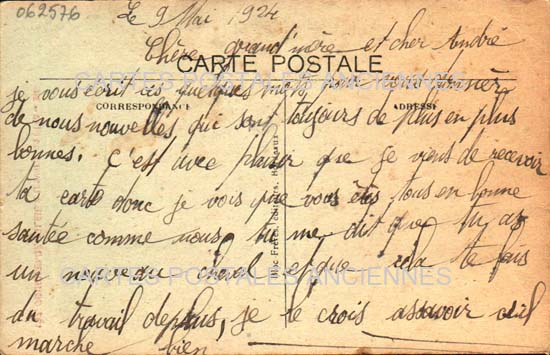 062576
Le 9 Mai 1924
Chère grand'mère et cher André
CARTE POSTALE
CARTES POSTALES ANCIENNES
je vous écrit ces quelques mots pour vous donner
CORRESPONDANCE
ADRESSE
de nous nouvelles qui sont toujours de plus en plus
bonnes. C'est avec plaisir que je viens de recevoir
ta carte donc je vois que vous êtes tous en bonne
santée comme nous. tu me dit que tu as
un nouveau cheval et que cela te fais
CARTES POSTALES ANCIENNES
du travail de plus, je te crois a savoir s'il
marche bien